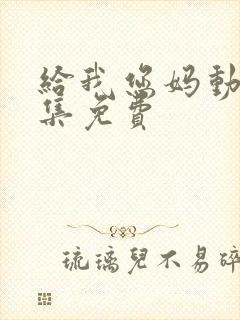 給我您妈動
集免費
琉璃兒不易碎